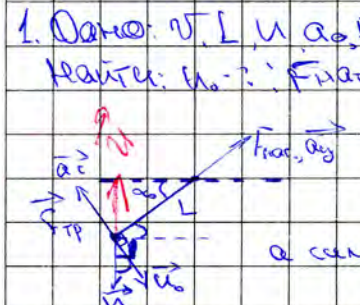 1. Дано: v, L, u, α₀,
Найти: u₀ - ? Fнат
v
Fнат, aц
aτ
α₀
L
Fтр
u₀
а сам